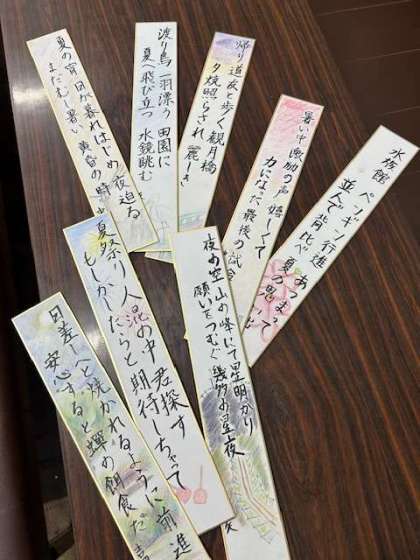 夏の宵 日が暮れはじめ 夜迫る
まだむし暑い 黄昏の時
渡り鳥 一羽漂う 田園に
夏へ飛び立つ 水鏡眺む
帰り道友と歩く観月橋
夕焼照らされ 麗しき
暑い中 激励の声 嬉しくて
力になった 最後の試合
水族館 ペンギン行進 あつまって
並んで背比べ 夏の思い出
夏祭り人混の中君探す
もしかしたらと期待しちゃって
夜の空山の峰にて星明かり
願いをつむぐ 幾多の星夜
日差しへと焼かれるように前進
安心すると蟬の餌食だ